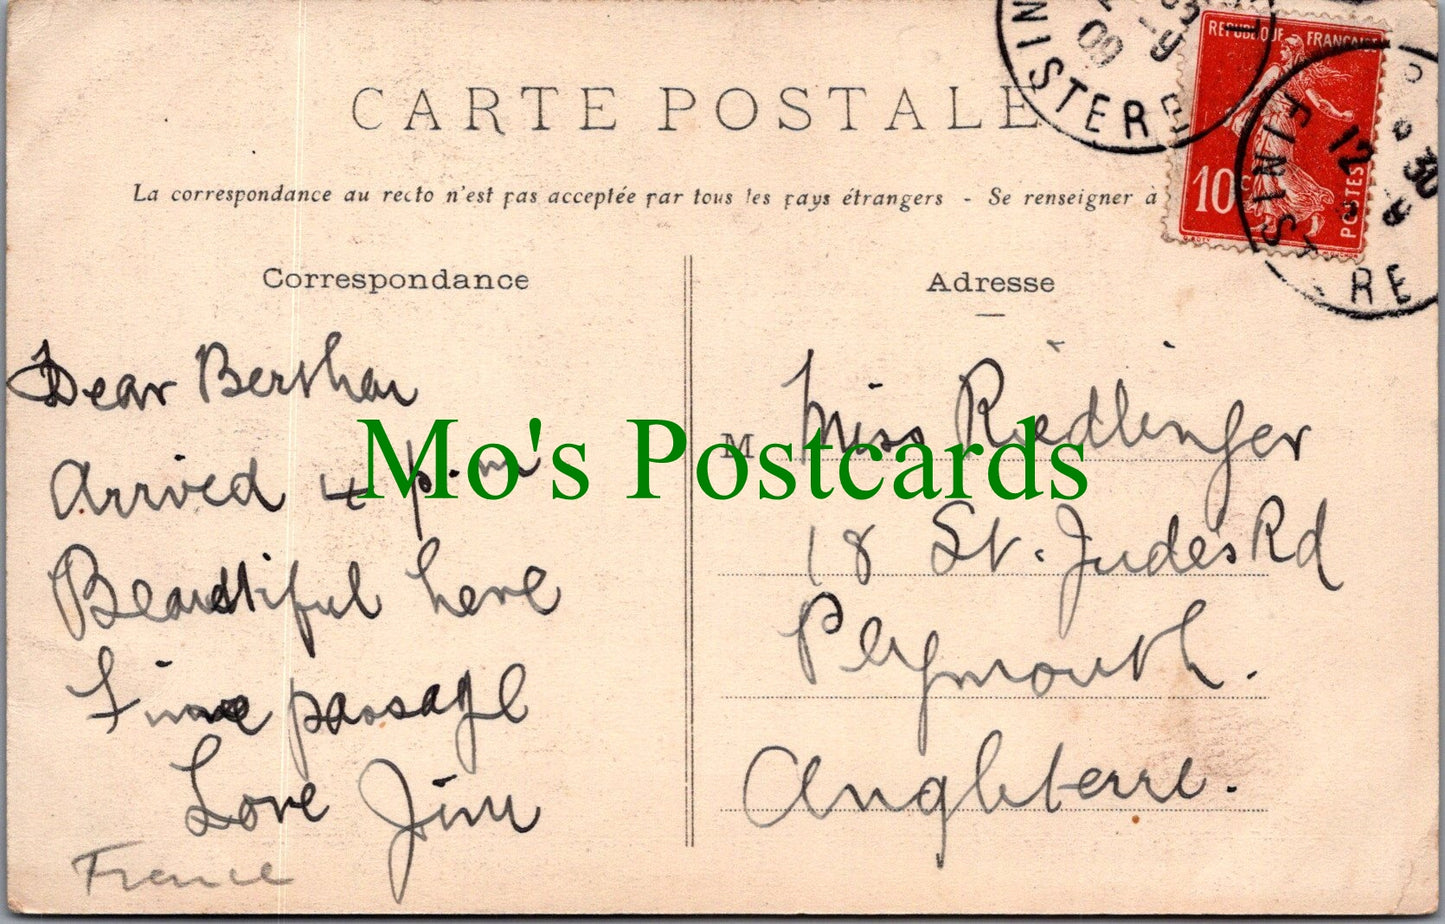 CARTE POSTALE
La correspondance au recto n'est pas acceptée par tous les pays étrangers - Se renseigner à
REPUBLIQUE FRANÇAISE
10c
POSTES
NISTERE
09
FINISTERE
12
30
Correspondance
Dear Bertha
Arrived 4 p.m
Beautiful here
Fine passage
Love Jim
France
Adresse
M Miss Riedlinger
18 St. Jude's Rd
Plymouth.
Angleterre.
Mo's Postcards